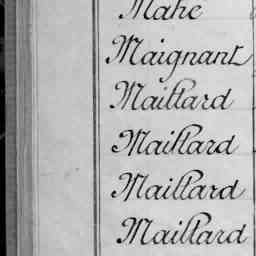 Mahe
Maignant
Maillard
Maillard
Maillard
Maillard